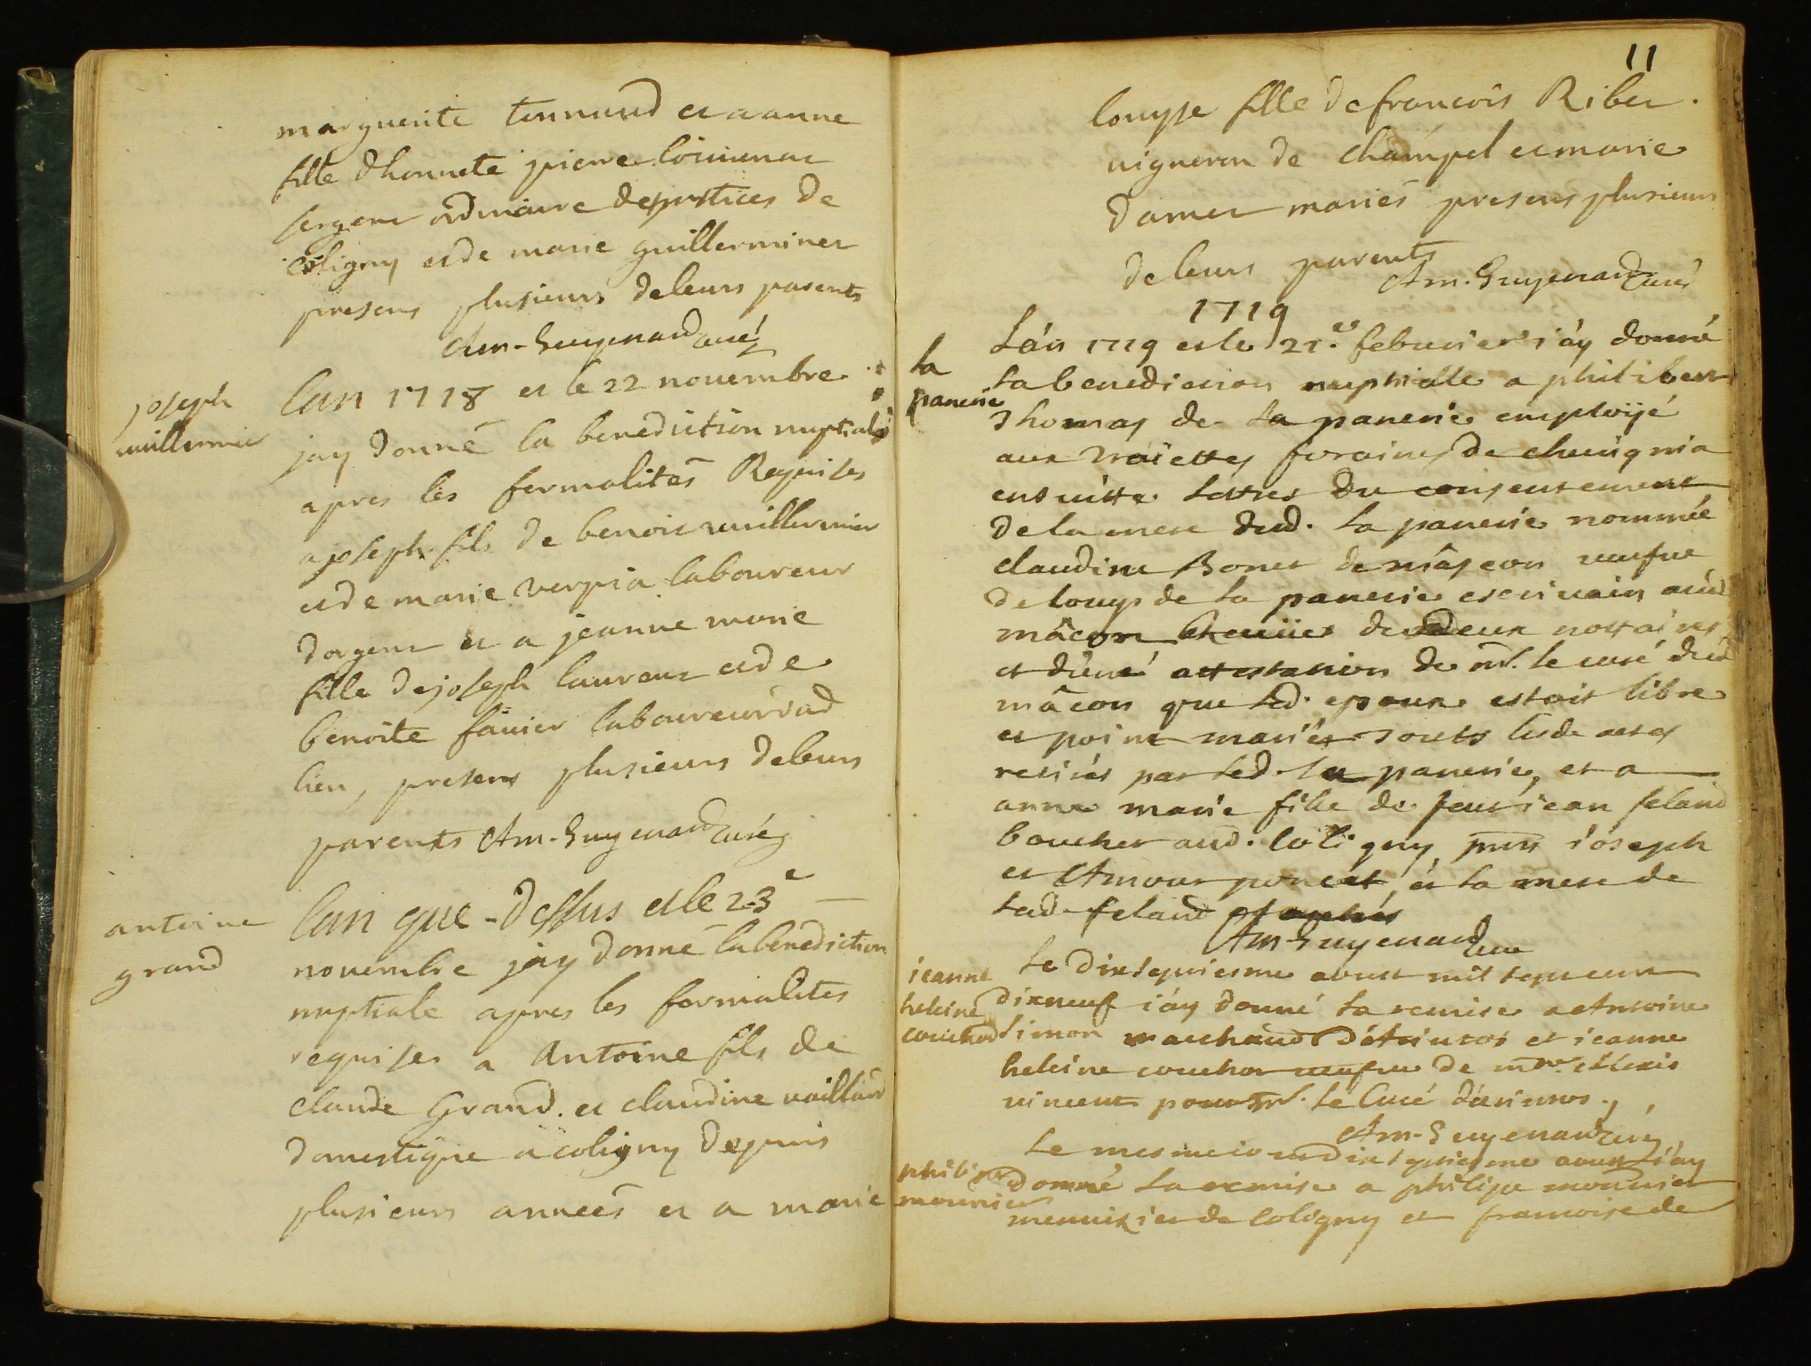 marguerite et a anne
fille d'honnete pierre
sergent ordinaire des justices de
coligny et de marie guillerminet
presens plusieurs de leurs parents
Am. Guyenard curé
joseph
vuillermier
Lan 1718 et le 22 novembre
jay donné la benediction nuptiale
apres les formalités Requises
a joseph fils de benoit vuillermier
et de marie verpia laboureur
dargent et a jeanne marie
fille de joseph laurent et de
benoite favier laboureur aud
lieu, presens plusieurs de leurs
parents Am. Guyenard curé
antoine
grand
Lan que dessus et le 23e
novembre jay donné la benediction
nuptiale apres les formalites
requises a Antoine fils de
claude Grand. et claudine vaillard
domestique a coligny depuis
plusieurs années et a marie
11
louyse fille de francois Ribet.
vigneron de champel et marie
damet mariés presens plusieurs
de leurs parents
Am. Guyenard curé
1719
la
panerie
Lán 1719 et le 21.e febvrier i'áy donné
la benediction nuptialle a philibert
Thomas de la panerie employé
aux traiettes foraines de chevignia
ensuitte lettres du consentement
de la mere dud. la panerie nommée
claudine Bonet de mâscon veufve
de louys de la panerie escrivain aud
mâcon de deux nottaires
et d'une attestation de mr. le curé dud
mâcon que led. epoux estoit libre
et point marié touts actes
retirés par led. la panerie, et a
anne marie fille de feu iean feland
boucher aud. Coligny pnts ioseph
et Amour poncet, et la mere de
lad. feland
Am. Guyenard curé
ieanne
heleine
couchod
Le dixseptiesme aoust mil sept cent
dixneuf i'áy donné la remise a Antoine
Simon marchand et ieanne
heleine couchot veufve de mr. Alexis
vincent pour mr. le Curé
Am. Guyenard curé
philipe
meunier
Le mesme iour dixseptiesme aoust i'ay
donné la remise a philipe mounier
menuizier de Coligny et francoise de